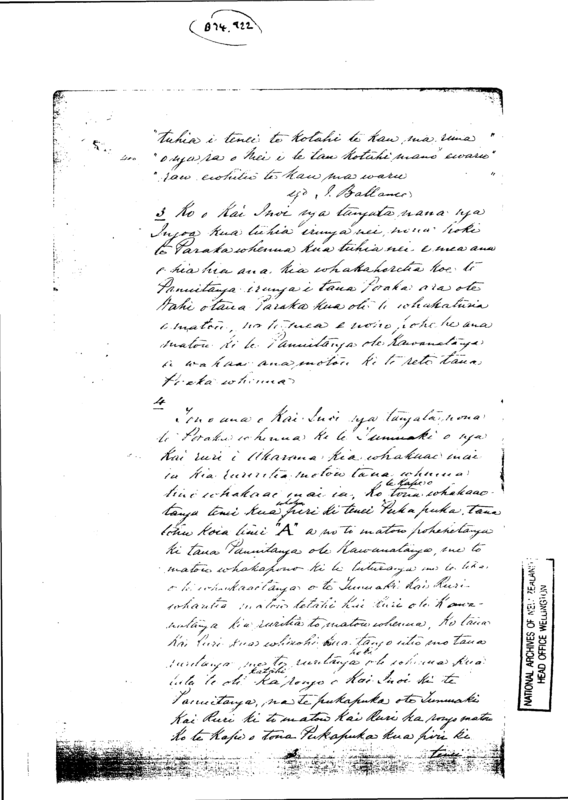 B74.922
"tuhia i tenei te Kotahi te Kau ma rua"
"o nga ra o Mei i te tau Kotahi mano ewaru"
"rau ewhitu te Kau ma waru"
J. Ballance
3 Ko o Kai Inoi nga tangata nana nga
Ingoa kua tuhia irunga nei, nona hoki
te Paraka whenua kua tuhia nei e mea ana
e hia hia ana kia whakahoretia koe te
Panuitanga irunga i tana Poraka ara ote
Wahi otana Paraka kua oti te whakaturia
e matou, no te mea e noho pohehe ana
matou ki te Panuitanga ote Kawanatanga
ana matou ki te tana
whenua
4
Inoi ana o Kai Inoi nga tangata nona
te Poraka whenua ki te Tumuaki o nga
Kai ruri i Akarana kia whakaae mai
ia kia ruritia matou tana whenua
whakaae mai ia, Ko te Kape o tona whakaae-
tanga tenei kua piri ki tenei Puka puka, tana
tohu koia tenei "A" a no te matou pohehetanga
ki tana Panuitanga ote Kawanatanga, me to
matou whakapono ki te me te tika
o te whakaaetanga o te Tumuaki Kai Ruri
matou tetahi Kai Ruri ote Kawa-
natanga kia ruritia to matou whenua, Ko taua
Kai Ruri kua whiwhi kua tango utu mo tana
ruritanga mo te ruritanga hoki ote whenua kua
oti katahi ka rongo o Kai Inoi ki te
Panuitanga, na te pukapuka ote Tumuaki
Kai Ruri ki te matou Kai Ruri ka rongo matou
Ko te Kape o tona Pukapuka kua piri ki
3
tenei
NATIONAL ARCHIVES OF NEW ZEALAND
HEAD OFFICE WELLINGTON